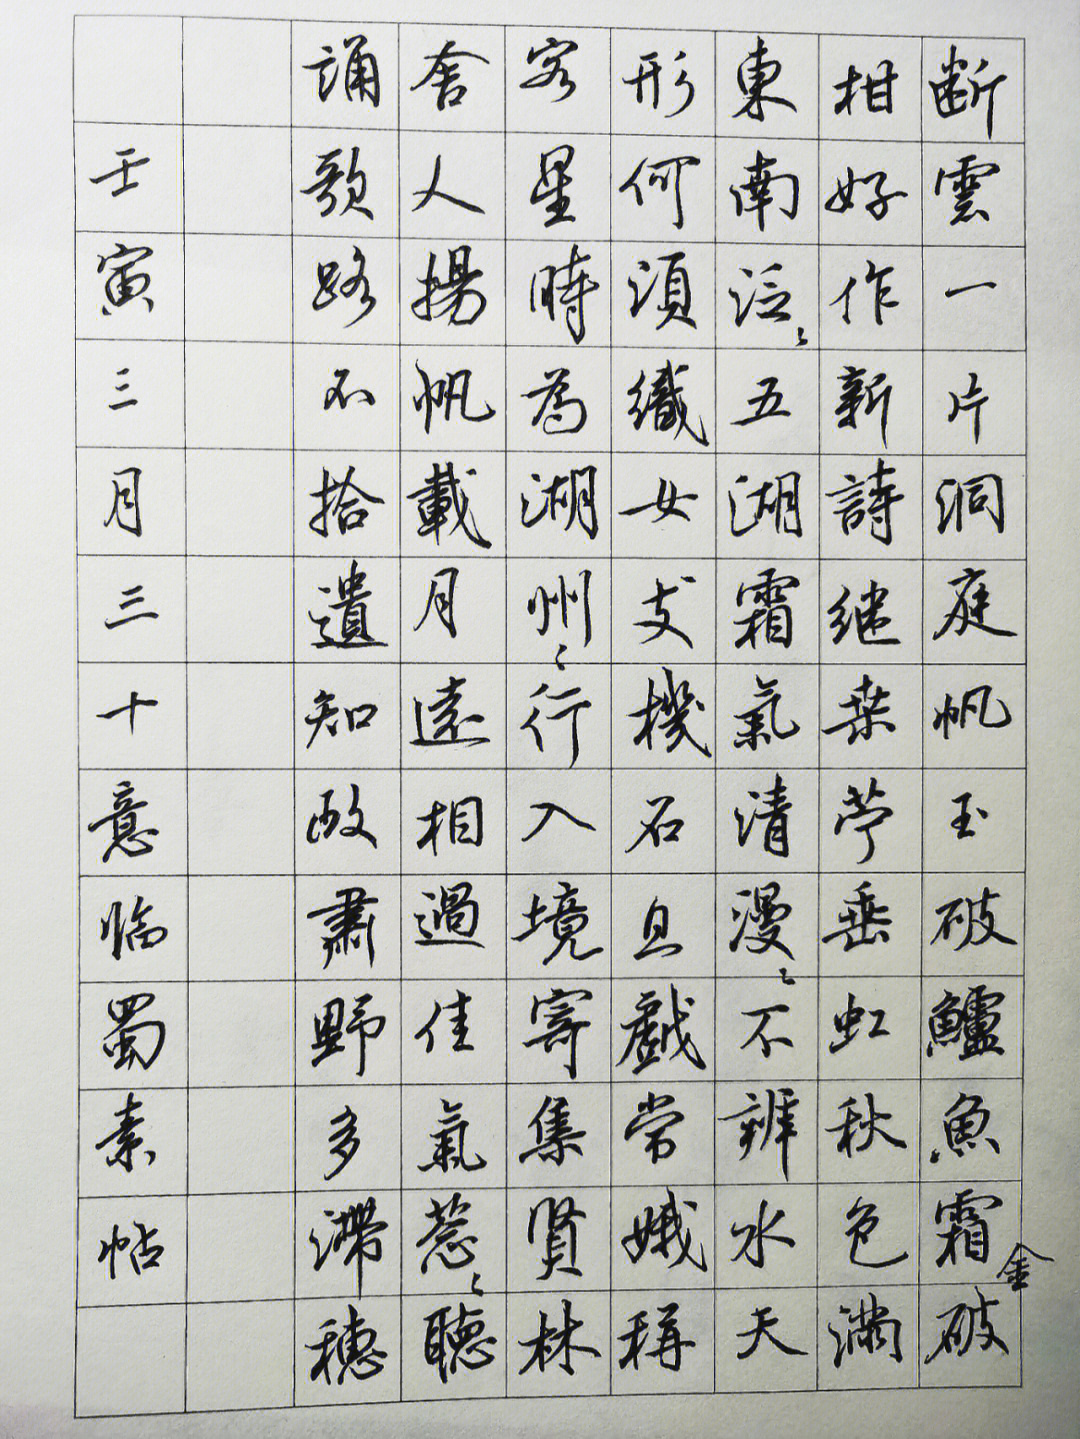 断雲一片洞庭帆玉破鱸魚霜破金
柑好作新詩継桑苧垂虹秋色滿
東南泛〻五湖霜氣清漫〻不辨水天
形何須織女支機石且戲常娥稱
客星時為湖州〻行入境寄集賢林
舍人揚帆載月遠相過佳氣葱〻聽
誦歌路不拾遺知政肅野多滯穗
壬寅三月三十意临蜀素帖